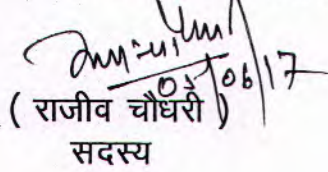 05/06/17
( राजीव चौधरी )
सदस्य